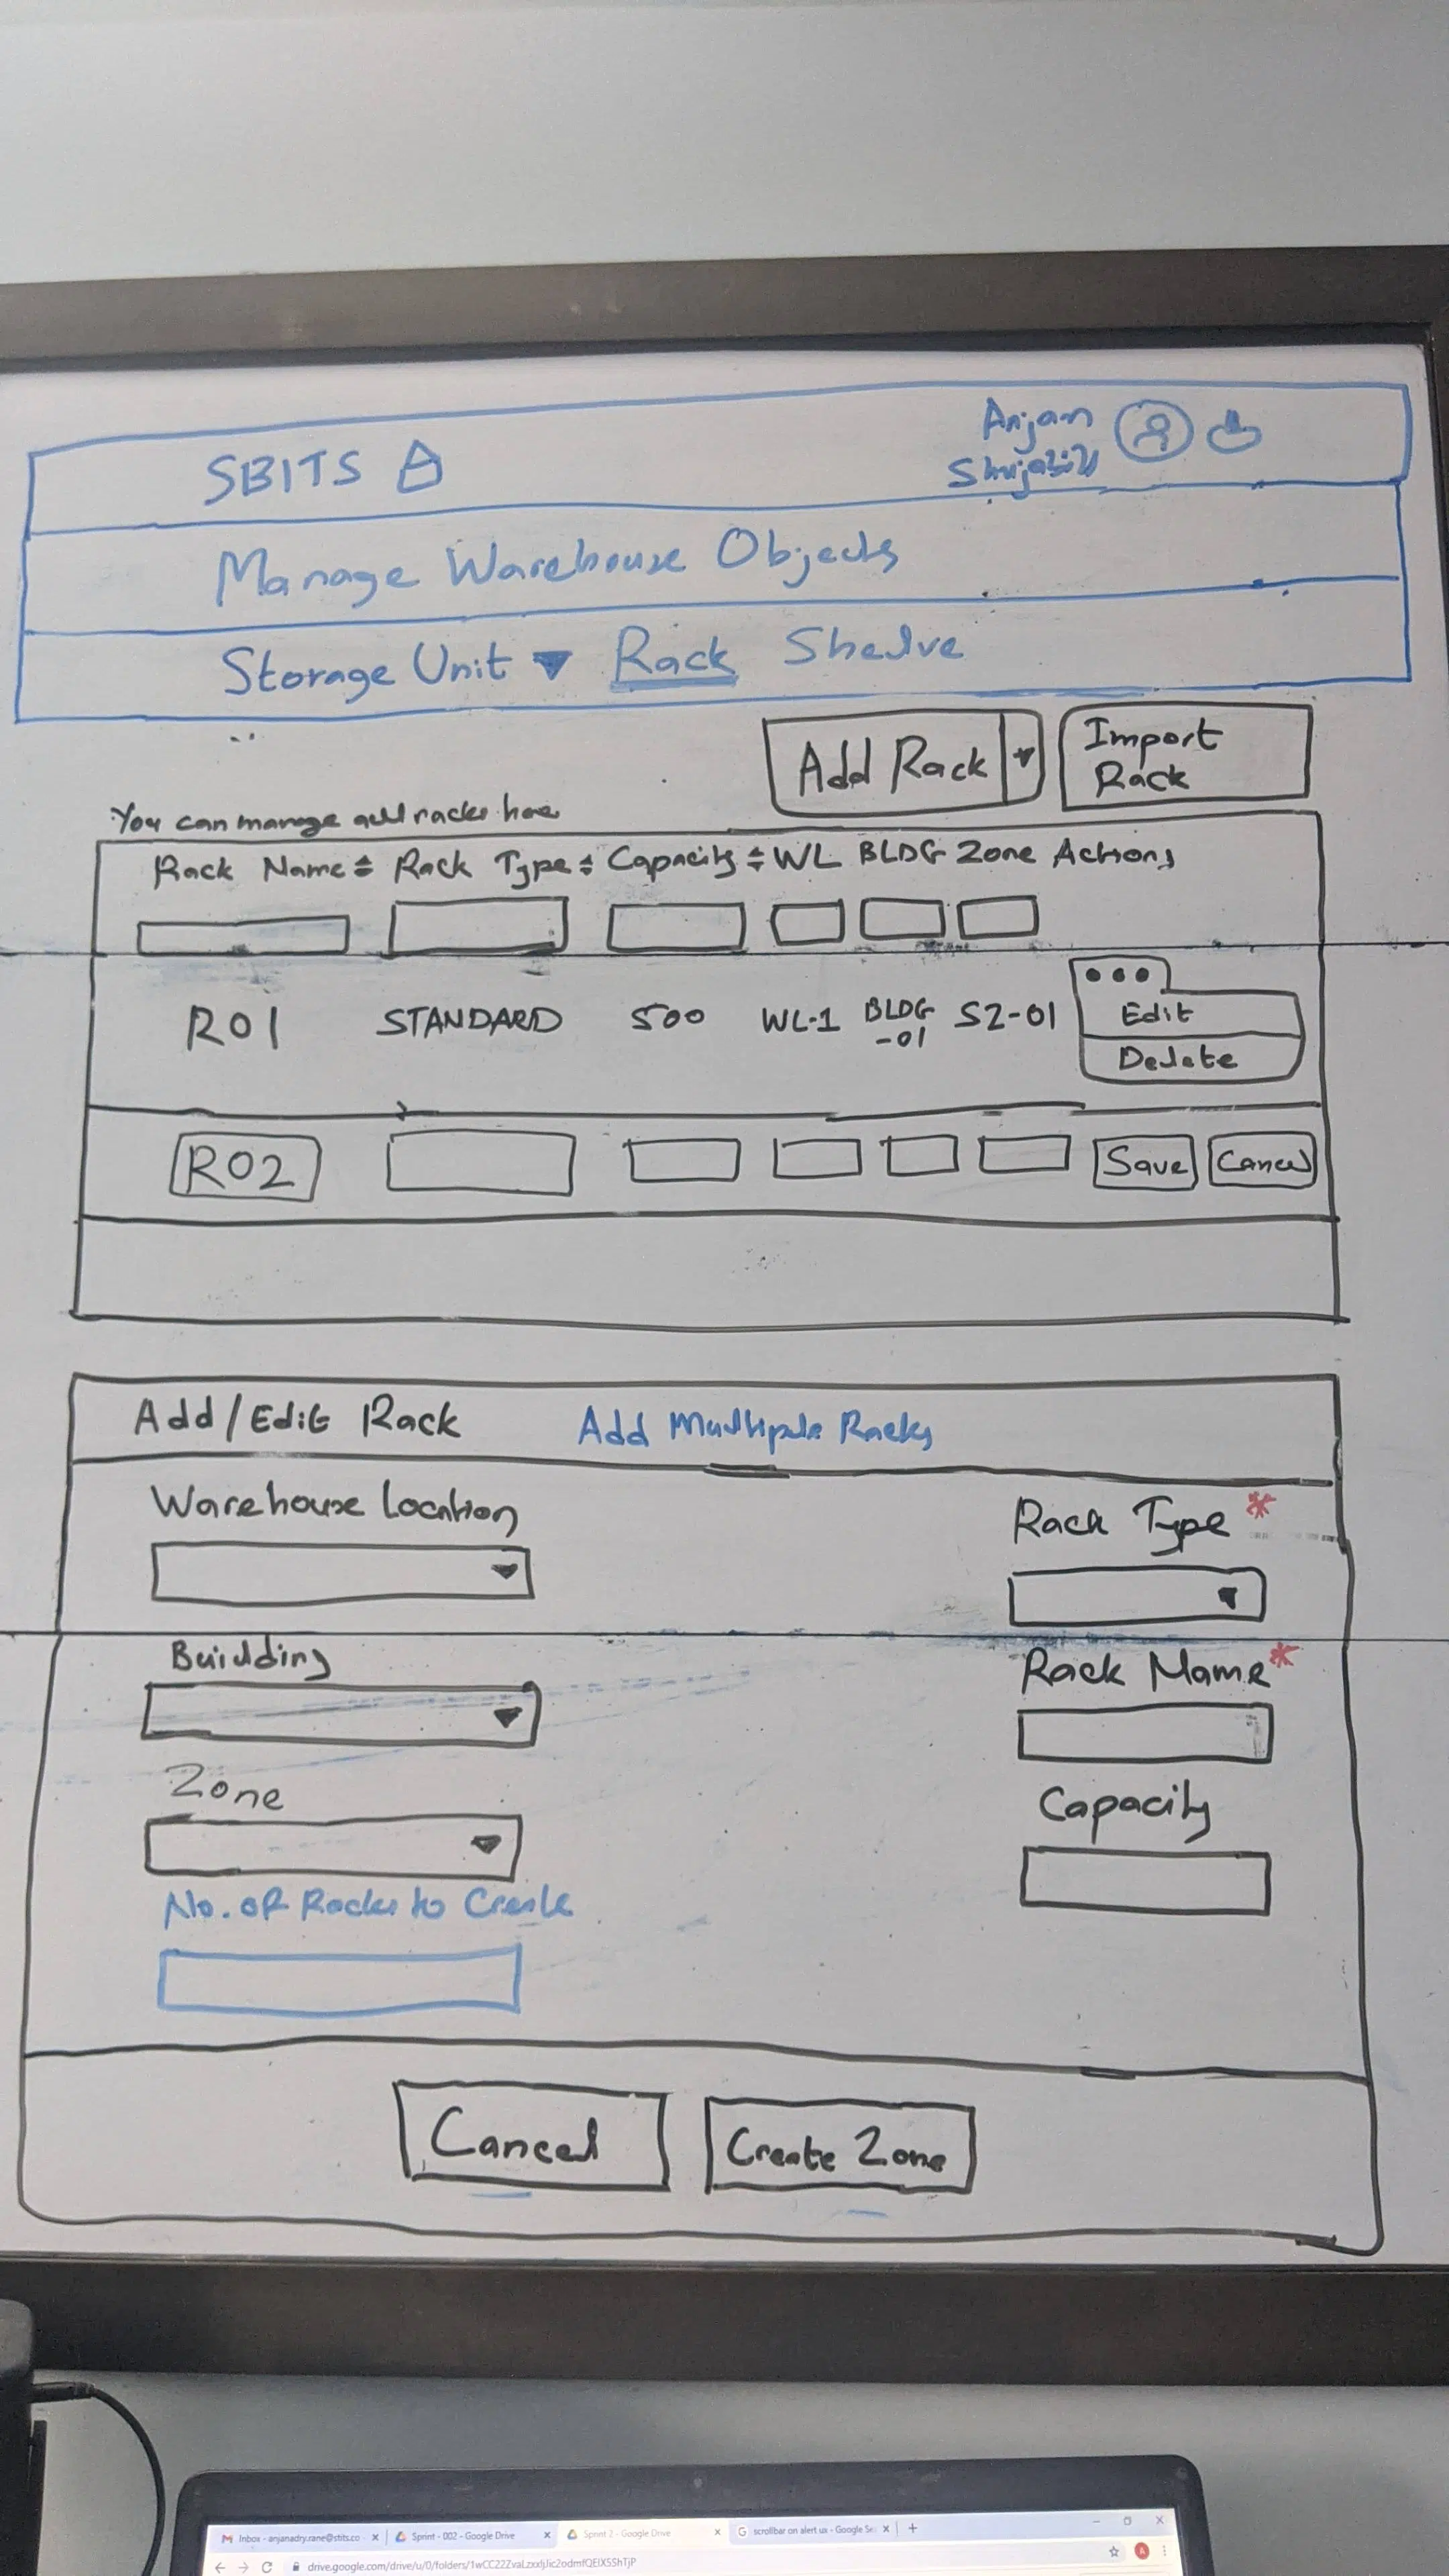 SBITS
Anjan
Manage Warehouse Objects
Storage Unit ▼ Rack Shelve
Add Rack ▼
Import
Rack
You can manage all racks here
Rack Name Rack Type Capacity WL BLDG Zone Actions
R01 STANDARD 500 WL-1 BLDG
-01 SZ-01
Edit
Delete
R02 Save Cancel
Add/Edit Rack Add Multiple Racks
Warehouse Location
Rack Type *
Building
Rack Name *
Zone
Capacity
No. of Racks to Create
Cancel Create Zone
Inbox - anjanadry.rane@stits.co
Sprint - 002 - Google Drive
Sprint 2 - Google Drive
scrollbar on alert ux - Google Se